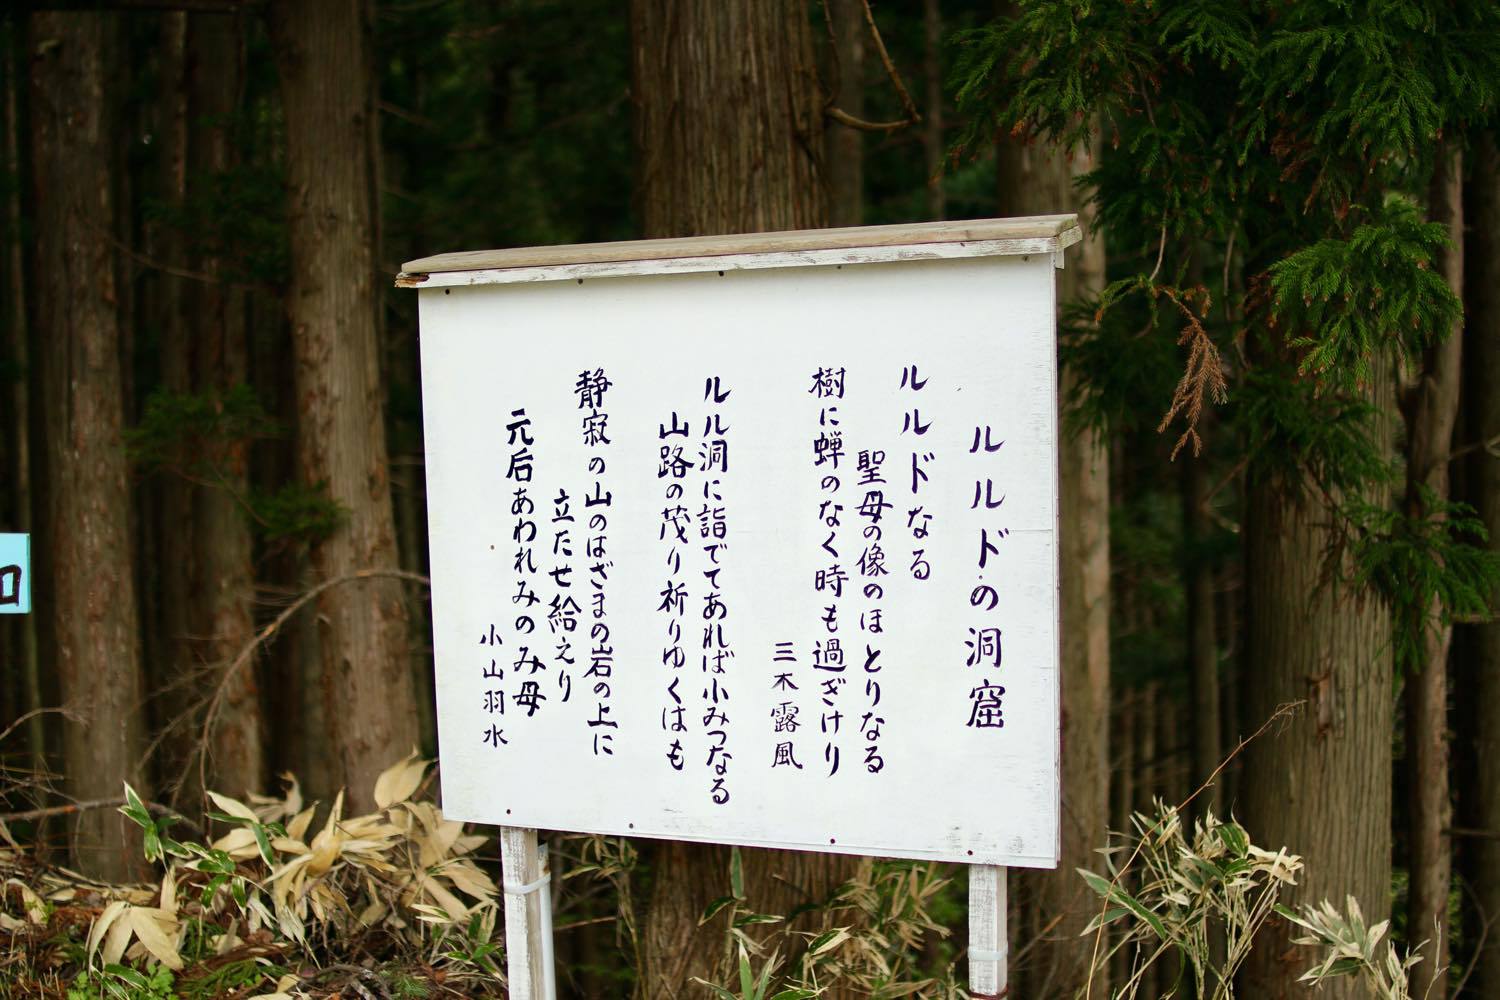 ルルドの洞窟
ルルドなる
聖母の像のほとりなる
樹に蝉のなく時も過ぎけり
三木露風
ルルル洞に詣でてあれば小みつなる
山路の茂り祈りゆくはも
静寂の山のはざまの岩の上に
立たせ給えり
元后あわれみのみ母
小山羽水